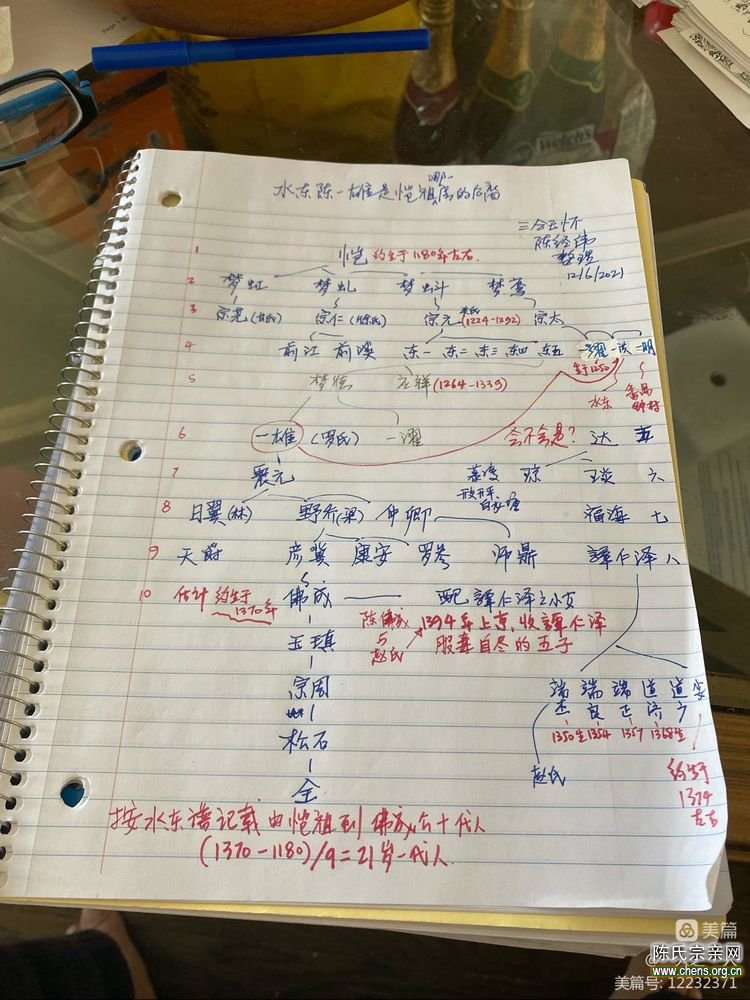 水东陈一雄是恺祖哪一房的后裔
三合五怀
陈经伟
整理
12/6/2021
1 恺 约生于1180年左右.
2 梦虹 梦虬 梦蚪 梦鸾
3 宗尧(杜氏) 宗仁(徐氏) 宗元 朱氏(1224-1292) 宗太
4 前江 前溪 东一 东二 东三 东四 东五 一跃 一明
生于1250
5 梦德 应祥(1264-1339) 水东 番禺
6 一雄(罗氏) 一濯 会不会是? 达 五
7 震元 琼 琰 六
8 日翼(林) 野乔(梁) 仲卿 福海 七
9 天爵 彦冀 康安 罗参 师鼎 谭仁泽 八
10 估计约生于1370年 佛成 — 配谭仁泽之小女
陈佛成与赵氏 1394年上京,收谭仁泽
服毒自尽的五子
玉瑱
宗周
松石
全
端 端 端 道 道 安
杰 良 正 济 宁
1350生 1354 1357 1368生
赵氏
约生于
1374
左右
按水东谱记载由恺祖到佛成公十代人
(1370-1180)/9=21岁一代人.
Welch's
美篇
陈氏宗亲网
www.chens.org.cn
美篇号: 12232371